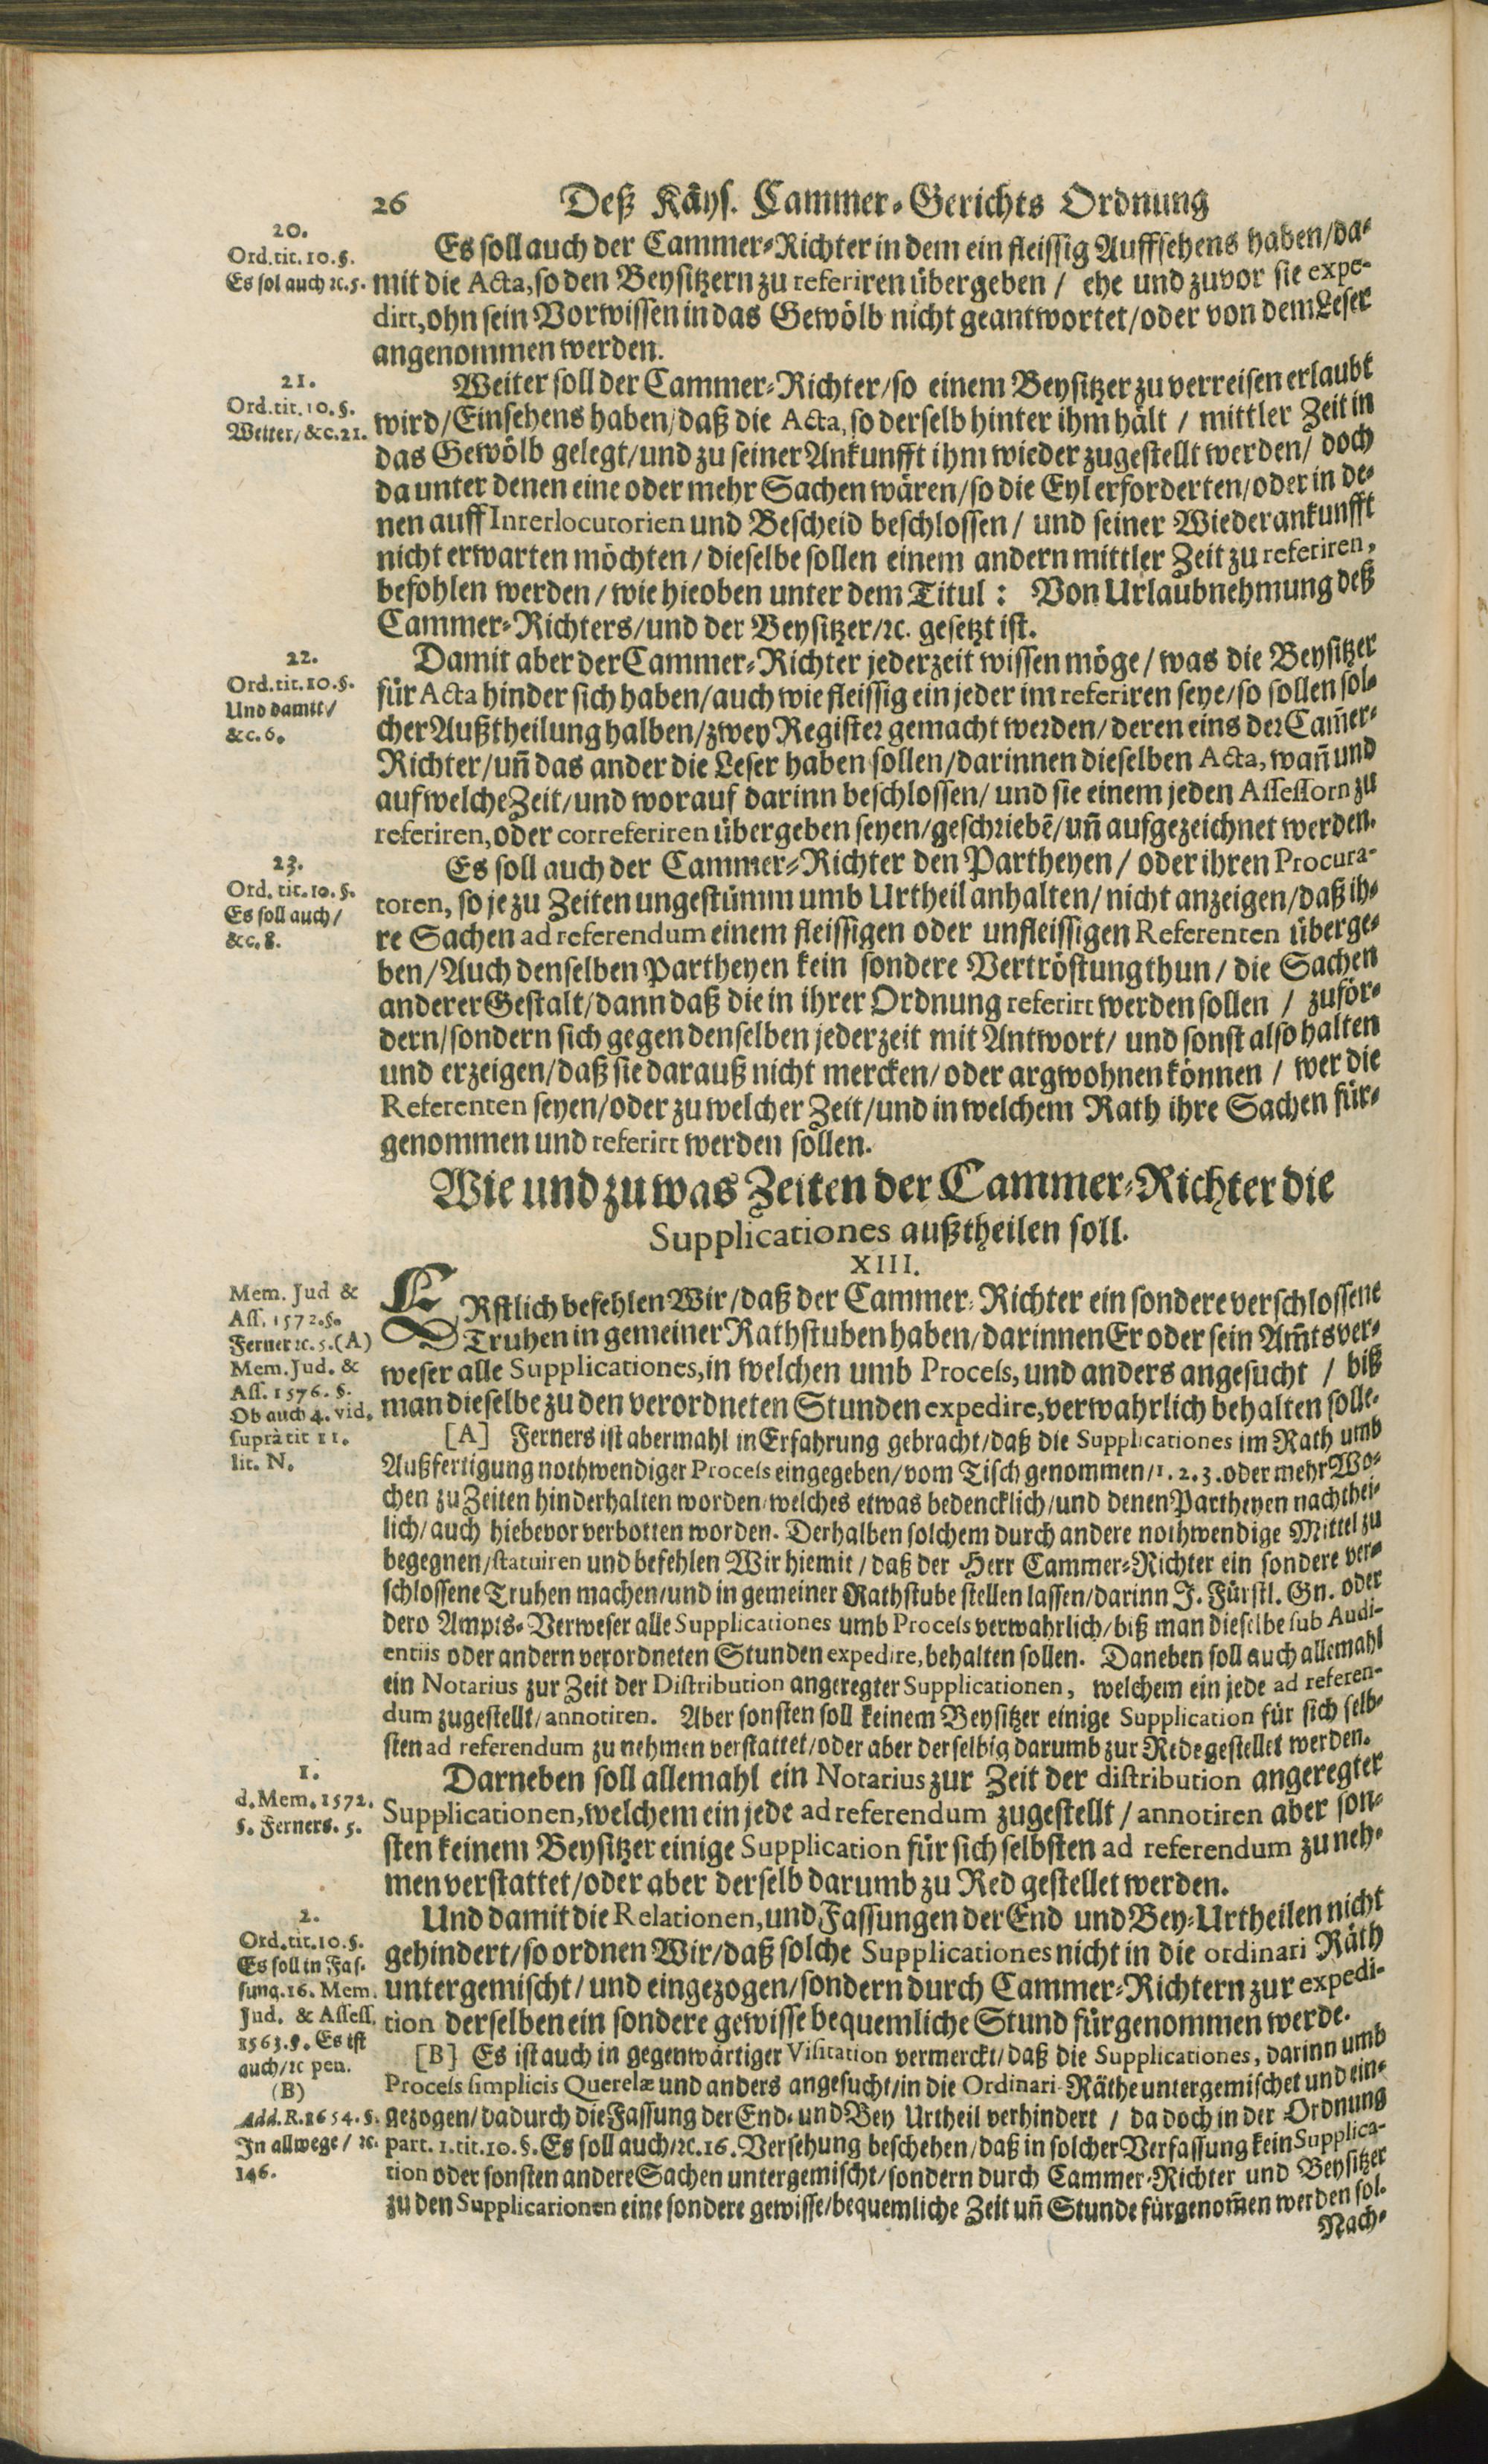 26 Deß Käys. Cammer-Gerichts Ordnung
20.
Ord. tit. 10. §.
Es sol auch ꝛc. 5.
Es soll auch der Cammer-Richter in dem ein fleissig Auffsehens haben/da-
mit die Acta, so den Beysitzern zu referiren übergeben / ehe und zuvor sie expe-
dirt, ohn sein Vorwissen in das Gewölb nicht geantwortet/oder von dem Leser
angenommen werden.
21.
Ord. tit. 10. §.
Weiter/ &c. 21.
Weiter soll der Cammer-Richter/so einem Beysitzer zu verreisen erlaubt
wird/Einsehens haben/daß die Acta, so derselb hinter ihm hält / mittler Zeit in
das Gewölb gelegt/und zu seiner Ankunfft ihm wieder zugestellt werden/ doch
da unter denen eine oder mehr Sachen wären/so die Eyl erforderten/oder in de-
nen auff Interlocutorien und Bescheid beschlossen / und seiner Wiederankunfft
nicht erwarten möchten / dieselbe sollen einem andern mittler Zeit zu referiren,
befohlen werden / wie hieoben unter dem Titul : Von Urlaubnehmung deß
Cammer-Richters/und der Beysitzer/ꝛc. gesetzt ist.
22.
Ord. tit. 10. §.
Und damit/
&c. 6.
Damit aber der Cammer-Richter jederzeit wissen möge / was die Beysitzer
für Acta hinder sich haben/auch wie fleissig ein jeder im referiren seye/so sollen sol-
cher Außtheilung halben/zwey Register gemacht werden/ deren eins der Cam̃er-
Richter/uñ das ander die Leser haben sollen/darinnen dieselben Acta, wañ und
auf welche Zeit/und worauf darinn beschlossen/ und sie einem jeden Assessorn zu
referiren, oder correferiren übergeben seyen/geschriebẽ/uñ aufgezeichnet werden.
23.
Ord. tit. 10. §.
Es soll auch/
&c. 8.
Es soll auch der Cammer-Richter den Partheyen / oder ihren Procura-
toren, so je zu Zeiten ungestümm umb Urtheil anhalten/ nicht anzeigen/daß ih-
re Sachen ad referendum einem fleissigen oder unfleissigen Referenten überge-
ben/Auch denselben Partheyen kein sondere Vertröstung thun / die Sachen
anderer Gestalt/dann daß die in ihrer Ordnung referirt werden sollen / zuför-
dern/sondern sich gegen denselben jederzeit mit Antwort/ und sonst also halten
und erzeigen/daß sie darauß nicht mercken/oder argwohnen können / wer die
Referenten seyen/oder zu welcher Zeit/und in welchem Rath ihre Sachen für-
genommen und referirt werden sollen.
Wie und zu was Zeiten der Cammer-Richter die
Supplicationes außtheilen soll.
XIII.
Mem. Jud &
Ass. 1572. §.
Ferner ꝛc. 5. (A)
Mem. Jud. &
Ass. 1576. §.
Ob auch 4. vid.
suprà tit 11.
lit. N.
ERstlich befehlen Wir/daß der Cammer-Richter ein sondere verschlossene
Truhen in gemeiner Rathstuben haben/darinnen Er oder sein Am̃tsver-
weser alle Supplicationes, in welchen umb Process, und anders angesucht / biß
man dieselbe zu den verordneten Stunden expedire, verwahrlich behalten solle.
[A] Ferners ist abermahl in Erfahrung gebracht/daß die Supplicationes im Rath umb
Außfertigung nothwendiger Process eingegeben/vom Tisch genommen/1. 2. 3. oder mehr Wo-
chen zu Zeiten hinderhalten worden/welches etwas bedencklich/und denen Partheyen nachthei-
lich/auch hiebevor verbotten worden. Derhalben solchem durch andere nothwendige Mittel zu
begegnen/statuiren und befehlen Wir hiemit / daß der Herr Cammer-Richter ein sondere ver-
schlossene Truhen machen/und in gemeiner Rathstube stellen lassen/darinn J. Fürstl. Gn. oder
dero Ampts-Verweser alle Supplicationes umb Process verwahrlich/biß man dieselbe sub Audi-
entiis oder andern verordneten Stunden expedire, behalten sollen. Daneben soll auch allemahl
ein Notarius zur Zeit der Distribution angeregter Supplicationen, welchem ein jede ad referen-
dum zugestellt/annotiren. Aber sonsten soll keinem Beysitzer einige Supplication für sich selb-
sten ad referendum zu nehmen verstattet/oder aber derselbig darumb zur Rede gestellet werden.
1.
d. Mem. 1572.
§. Ferners. 5.
Darneben soll allemahl ein Notarius zur Zeit der distribution angeregter
Supplicationen, welchem ein jede ad referendum zugestellt / annotiren aber son-
sten keinem Beysitzer einige Supplication für sich selbsten ad referendum zu neh-
men verstattet/oder aber derselb darumb zu Red gestellet werden.
2.
Ord. tit. 10. §.
Es soll in Fas-
sung. 16. Mem.
Jud. & Assess.
1563. §. Es ist
auch/ꝛc pen.
(B)
Add. R. 1654. §.
In allwege / ꝛc.
146.
Und damit die Relationen, und Fassungen der End und Bey-Urtheilen nicht
gehindert/so ordnen Wir/daß solche Supplicationes nicht in die ordinari Räth
untergemischt / und eingezogen/sondern durch Cammer-Richtern zur expedi-
tion derselben ein sondere gewisse bequemliche Stund fürgenommen werde.
[B] Es ist auch in gegenwärtiger Visitation vermerckt/daß die Supplicationes, darinn umb
Process simplicis Querelæ und anders angesucht/in die Ordinari-Räthe untergemischet und ein-
gezogen/dadurch die Fassung der End- und Bey Urtheil verhindert / da doch in der Ordnung
part. 1. tit. 10. §. Es soll auch/ꝛc. 16. Versehung beschehen/daß in solcher Verfassung kein Supplica-
tion oder sonsten andere Sachen untergemischt/sondern durch Cammer-Richter und Beysitzer
zu den Supplicationen eine sondere gewisse/bequemliche Zeit uñ Stunde fürgenom̃en werden sol.
Nach-